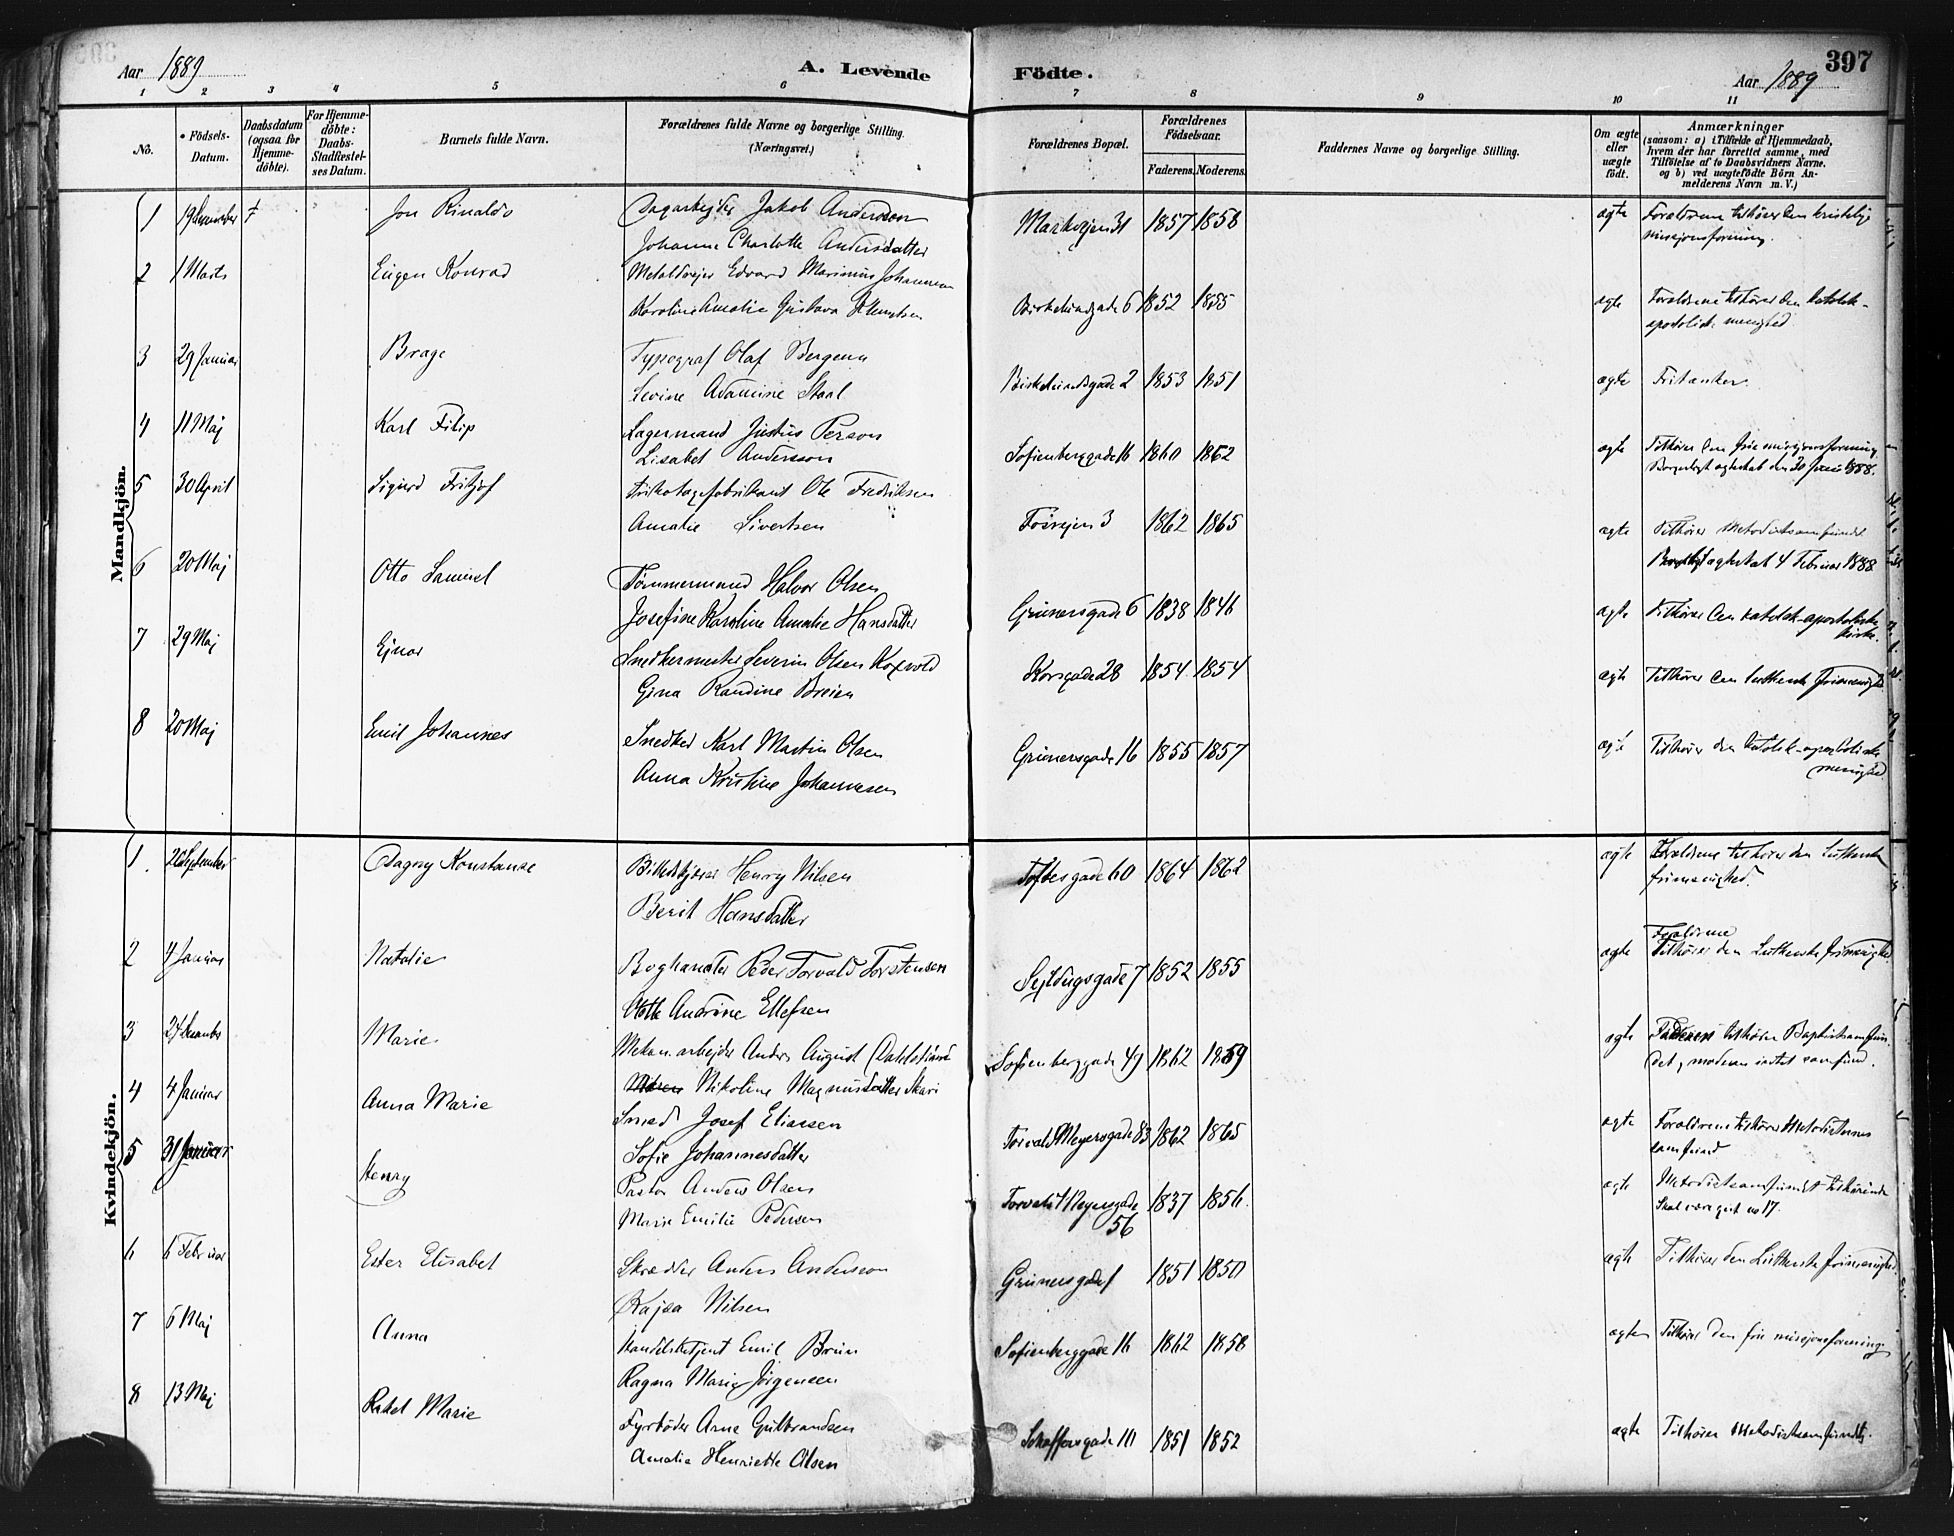 Aar 1889
A. Levende Fødte.
397
Aar 1889
1 2 3 4 5 6 7 8 9 10 11
No.
Födsels-Datum.
Daabsdatum (ogsaa for Hjemme-döbte).
For Hjemme-döbte: Daabs-Stadfæstelses Datum.
Barnets fulde Navn.
Forældrenes fulde Navne og borgerlige Stilling. (Næringsvei.)
Forældrenes Bopæl.
Forældrenes Födselsaar.
Faderens. Moderens.
Faddernes Navne og borgerlige Stilling.
Om ægte eller uægte födt.
Anmærkninger
(saasom: a) i Tilfælde af Hjemmedaab, hvem der har forrettet samme, med Tilföielse af to Daabsvidners Navne, og b) ved uægtefödte Börn Anmelderens Navn m. V.)
Mandkjön.
1 19 December Jon Rinaldo Dagarbejder Jakob Andersson Markvejen 31 1857 1858 ægte Forældrene tilhører den kristelige
Johanne Charlotte Andersdatter missionsforening.
2 1 Marts Eugen Konrad Metaldrejer Edvard Marinius Johannesen Birkelundgade 6 1852 1855 ægte Forældrene tilhører den katolsk-
Karoline Amalie Gustava Knutsen apostoliske menighed
3 29 Januar Brage Typograf Olaf Bergena Birkelundsgade 2 1853 1851 ægte Fritænker.
Levine Adamine Staal
4 11 Maj Karl Filip Lagermand Justus Person Sofienberggade 16 1860 1862 ægte Tilhører den frie missjonsforening
Lisabet Andersson Borgerligt ægteskab den 30 Juni 1888.
5 30 April Sigurd Fritjof Trikotagefabrikant Ole Fredriksen Tosvejen 3 1862 1865 ægte Tilhører Metodistsamfundet
Amalie Sivertsen ægteskab 4 Februar 1888
6 20 Maj Otto Samuel Tømmermand Halvor Olsen Grünersgade 6 1838 1846 ægte Tilhører den katolsk-apostoliske
Josefine Karoline Amalie Hansdatter kirke.
7 29 Maj Ejnar Snedkermester Severin Olsen Koxvold Korsgade 28 1854 1854 ægte Tilhører den lutherske frimenighed
Gina Randine Breien
8 20 Maj Emil Johannes Snedker Karl Martin Olsen Grünersgade 16 1855 1857 ægte Tilhører den katolsk-apostoliske
Anna Kristine Johannesen menighed.
Kvindekjön.
1. 26 September Dagny Konstanse Billedskjærer Henry Nilsen Toftesgade 60 1864 1862 ægte Forældrene tilhører den Lutherske
Berit Hansdatter frimenighed.
2 4 Januar Natalie Boghandler Peder Torvald Torstensen Sejldugsgade 7 1852 1855 ægte Forældrene
Tilhører den Lutherske frimenighed
Andrine Ellefsen
3 24 December Marie Mekan. arbejder Anders August Dahlstrøm Sofienberggade 49 1862 1859 ægte Faderen tilhører Baptistsamfun-
Nikoline Magnusdatter Skari det, moderen intet samfund.
4 4 Januar Anna Marie Smed Josef Eliassen Torvald Meyersgade 83 1862 1865 ægte Forældrene tilhører Metodisternes
Sofie Johannesdatter samfund
5 31 Januar Henry Pastor Anders Olsen Torvald Meyersgade 56 1837 1856. ægte Metodistsamfundet tilhørende
Marie Emilie Pedersen Skal være gut no 17.
6 6 Februar Ester Elisabet Skrædder Anders Andersson Grünersgade 1 1851 1850 ægte Tilhører den Lutherske frimenighed.
Kajsa Nilsen
7 6 Maj Anna Handelsbetjent Emil Brun Sofienberggade 16 1862 1858 ægte Tilhører den frie missjonsforening
Ragna Marie Jørgensen
8 13 Maj Rakel Marie Fyrbøder Arne Gulbrandsen Schaffersgade 10 1851 1852 ægte Tilhører Metodistsamfundet.
Amalie Henriette Olsen